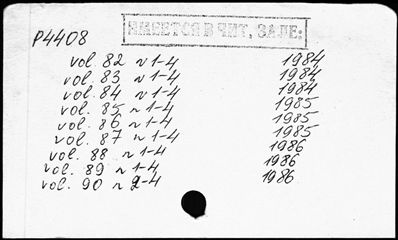 ИМЕЕТСЯ В ЧИТ. ЗАЛЕ:
P4408
vol. 82 N 1-4 1984
vol. 83 N 1-4 1984
vol. 84 N 1-4 1984
vol. 85 N 1-4 1985
vol. 86 N 1-4 1985
vol. 87 N 1-4 1985
vol. 88 N 1-4 1986
vol. 89 N 1-4 1986
vol. 90 N 2-4 1986